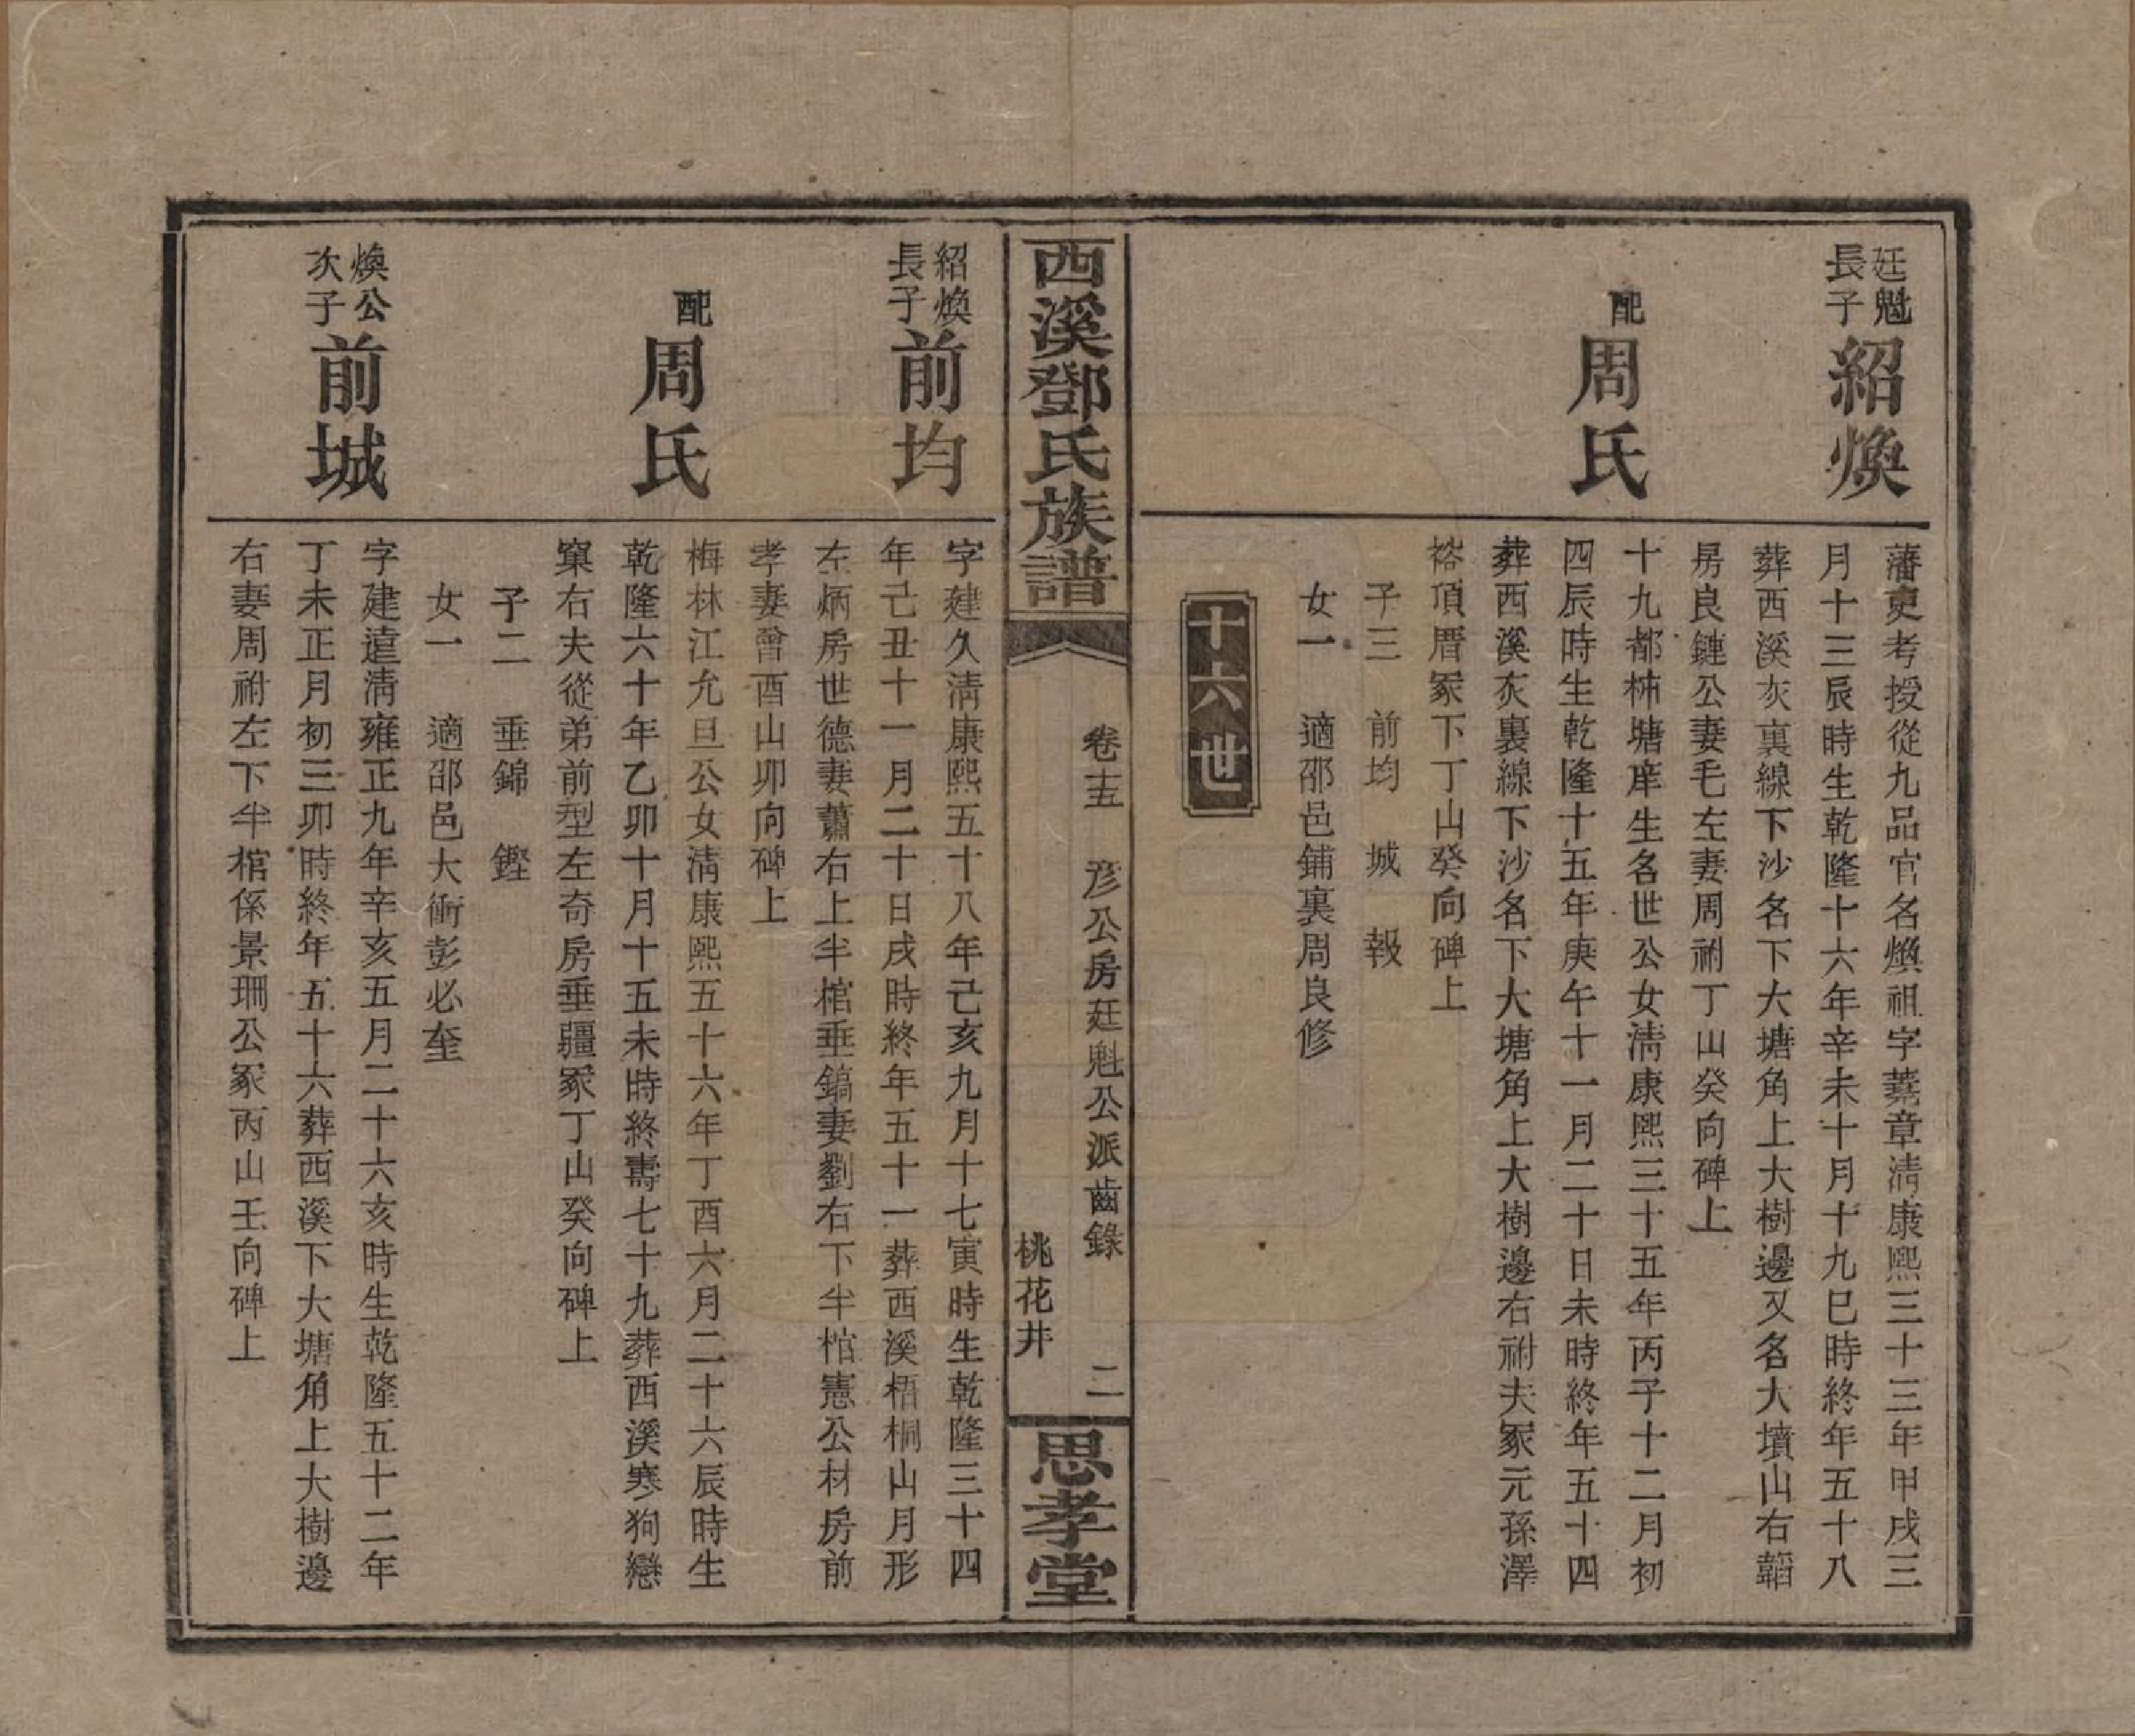 廷魁
長子
紹煥
藩吏考授從九品官名煥祖字蕘章淸康熙三十三年甲戌三
月十三辰時生乾隆十六年辛未十月十九巳時終年五十八
葬西溪灰裏線下沙名下大塘角上大樹邊又名大墳山右韜
房良鏈公妻毛左妻周祔丁山癸向碑上
配
周氏
十九都柿塘庠生名世公女淸康熙三十五年丙子十二月初
四辰時生乾隆十五年庚午十一月二十日未時終年五十四
葬西溪灰裏線下沙名下大塘角上大樹邊右祔夫冢元孫澤
褣頂厝冢下丁山癸向碑上
子三 前均 城 報
女一 適邵邑鋪裏周良修
十六世
西溪鄧氏族譜
卷十五 彥公房廷魁公派齒錄 二
桃花井
思孝堂
紹煥
長子
前均
字建久淸康熙五十八年己亥九月十七寅時生乾隆三十四
年己丑十一月二十日戌時終年五十一葬西溪梧桐山月形
左炳房世德妻蕭右上半棺垂鎬妻劉右下半棺憲公材房前
孝妻曾酉山卯向碑上
配
周氏
梅林江允旦公女淸康熙五十六年丁酉六月二十六辰時生
乾隆六十年乙卯十月十五未時終壽七十九葬西溪寒狗戀
窠右夫從弟前型左奇房垂疆冢丁山癸向碑上
子二 垂錦 鏗
女一 適邵邑大衝彭必奎
煥公
次子
前城
字建遠淸雍正九年辛亥五月二十六亥時生乾隆五十二年
丁未正月初三卯時終年五十六葬西溪下大塘角上大樹邊
右妻周祔左下半棺係景珊公冢丙山壬向碑上